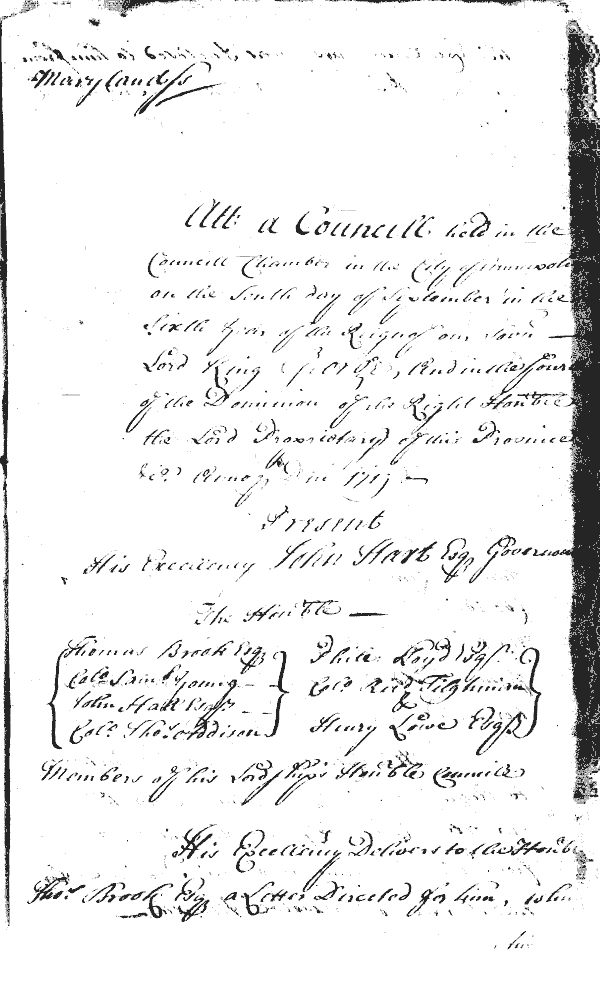 Maryland ss
Att a Councill held in the
Councill Chamber in the City of Annapolis
on the Tenth day of September in the
Sixth Year of the Reign of our Sovn
Lord King George, And in the fourt
of the Dominion of the Right Honble
the Lord Proprietary of this Province
&ca. Annoq Dm 1719
Present
His Excellency John Hart Esq Governour
The Honble
Thomas Brook Esq
Colo. Saml Young
John Hall Esqs
Colo. Thos. Addison
Phile: Lloyd Esqr.
Colo. Richd Tilghman
&
Henry Lowe Esqs
Members of his Lordships Honble Councill
His Excellency Delivers to the Honble
Thos. Brook Esq a Letter Directed for him, when